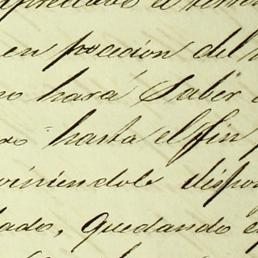 en pocecion del
no hará Saber
hasta el fin
viniendole dispon
lado, quedando e